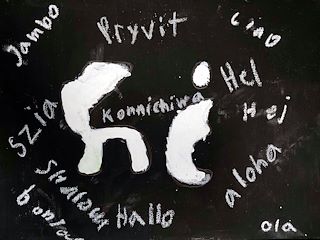 Jambo
Pryvit
Ciao
Hel
Hej
Konnichiwa
hi
Szia
Shalom
aloha
Hallo
ola